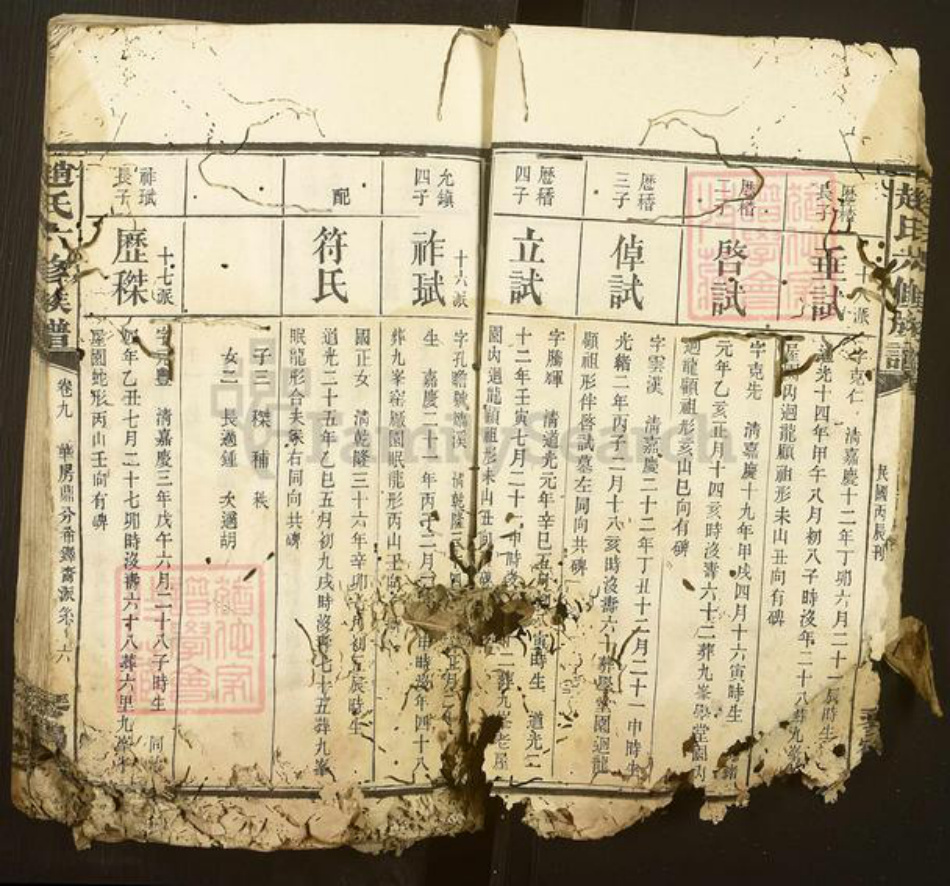 趙氏六修族譜
民國丙辰刊
歷稽長子
十八派
垂試
字克仁 清嘉慶十二年丁卯六月二十一辰時生
道光十四年甲午八月初八子時沒年二十八葬九峯
屋園內迴龍顧祖形未山丑向有碑
歷稽二子
啓試
字克先 清嘉慶十九年甲戌四月十六寅時生
元年乙亥正月十四亥時沒壽六十二葬九峯學堂園內
迴龍顧祖形亥山巳向有碑
歷稽三子
倬試
字雲漢 清嘉慶二十二年丁丑十二月二十一申時生
光緒二年丙子二月十八亥時沒壽六十葬學堂園迴龍
顧祖形伴啓試墓左同向共碑
歷稽四子
立試
字騰輝 清道光元年辛巳五月寅時生 道光二
十二年壬寅七月二十一申時沒二葬九峯老屋
園內迴龍顧祖形未山丑向
允鎮四子
十六派
祚珷
字孔瞻號 清乾隆
生 嘉慶二十一年丙子二月申時沒年四十八
葬九峯窑廠園眠龍形丙山壬向
配
符氏
國正女 清乾隆三十六年辛卯月初辰時生
道光二十五年乙巳五月初九戌時沒壽七十五葬九峯
眠龍形合夫冢右同向共碑
子三 榤 秿 秩
女二 長適鍾 次適胡
祚珷長子
十七派
歷榤
字元豐 清嘉慶三年戊午六月二十八子時生 同治
四年乙丑七月二十七卯時沒壽六十八葬六里九峯
屋園蛇形丙山壬向有碑
趙氏六修族譜
卷九 華房鼎分希鐸裔派系 六